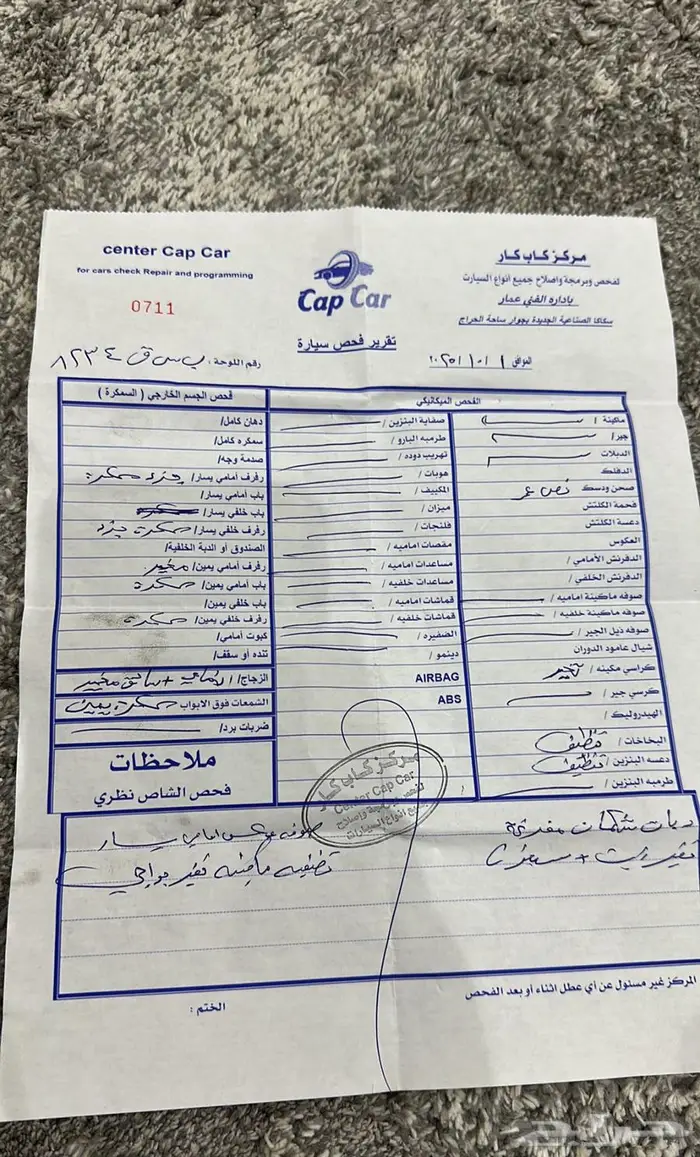 مركز كاب كار
لفحص وبرمجة واصلاح جميع انواع السيارت
بإداره الفني عمار
سكاكا الصناعية الجديدة بجوار ساحة الحراج
Cap Car
center Cap Car
for cars check Repair and programming
0711
تقرير فحص سيارة
الموافق
رقم اللوحة : ب س ق ٨٢٣٤
الفحص الميكانيكي
ماكينة /
جير /
الدبلات
الدفلك
صحن ودسك نص عمر
فحمة الكلتش
دعسة الكلتش
العكوس
الدفرنش الأمامي /
الدفرنش الخلفي /
صوفه ماكينة اماميه /
صوفه ماكينة خلفيه /
صوفه ذيل الجير /
شيال عامود الدوران
كراسي مكينه / تغيير
كرسي جير /
الهيدروليك /
البخاخات / تنظيف
دعسه البنزين / تنظيف
طرمبه البنزين /
صفاية البنزين /
طرمبه الباور /
تهريب دوده /
هوبات /
المكييف /
ميزان /
فلنجات /
مقصات اماميه /
مساعدات اماميه /
مساعدات خلفيه /
قماشات اماميه /
قماشات خلفيه /
الضفيره /
دينمو /
AIRBAG
ABS
فحص الجسم الخارجي ( السمكرة )
دهان كامل/
سمكره كامل/
صدمة وجه/
رفرف أمامي يسار/ جزء سمكرة
باب أمامي يسار/
باب خلفي يسار/
رفرف خلفي يسار/ سمكرة جزء
الصندوق أو الدبة الخلفية/
رفرف أمامي يمين/ مغير
باب أمامي يمين/ سمكرة
باب خلفي يمين/
رفرف خلفي يمين/ سمكرة
كبوت أمامي/
تنده أو سقف/
الزجاج/ الامامي + سائق مغيير
الشمعات فوق الابواب سمكرة يمين
ضربات برد/
ملاحظات
فحص الشاص نظري
مركز كاب كار
Center Cap Car
تغيير زيت +
تنظيف ماكينه تغير بواجي
المركز غير مسئول عن أي عطل اثناء أو بعد الفحص
الختم :
حراج